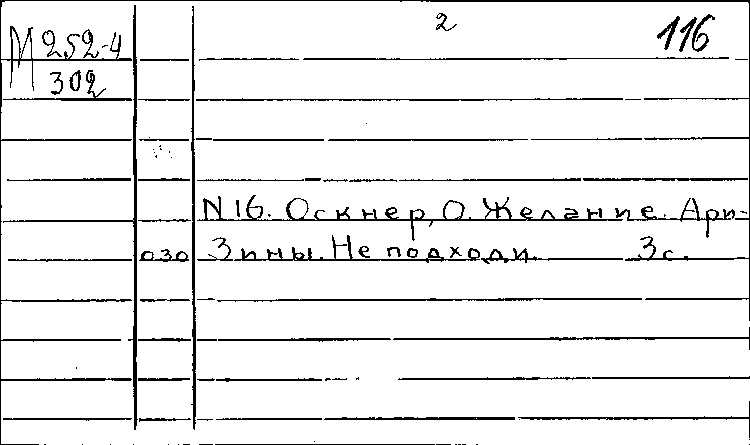 2
116
М 252-4
302
N 16. Оскнер, О. Желание. Ари-
030 зины. Не подходи. 3 с.